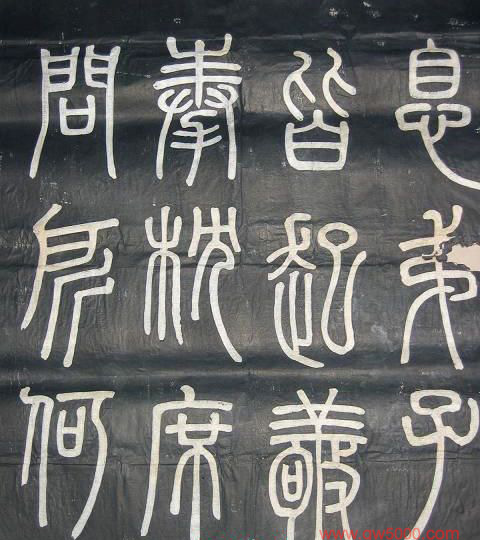 息弟子
皆起敬
奉枕席
問所何